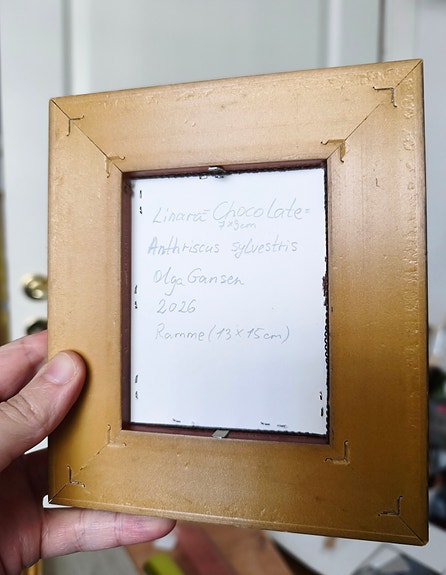 Linara "Chocolate"
7x9cm
Anthriscus sylvestris
Olga Gansen
2026
Ramme (13 x 15 cm)